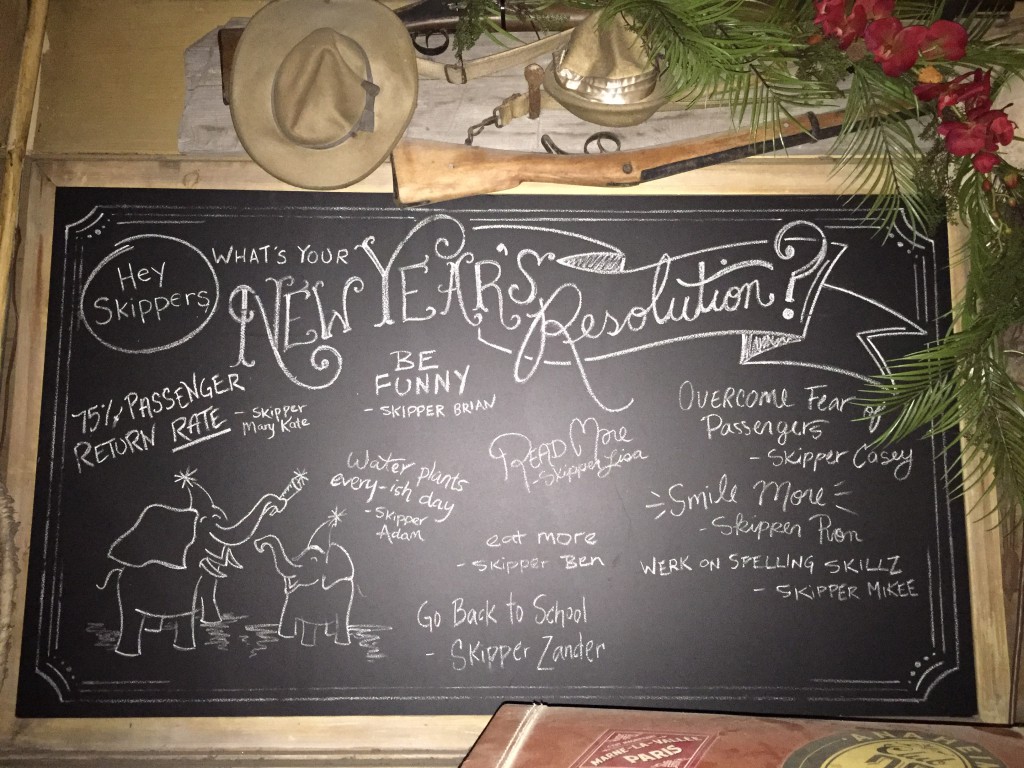 Hey
Skippers
WHAT'S YOUR
NEW YEAR'S
Resolution?
75% PASSENGER
RETURN RATE
- SKIPPER
Mary Kate
BE
FUNNY
- SKIPPER BRIAN
OVERCOME Fear of
Passengers
- Skipper Casey
READ More
- Skipper Lisa
Water plants
every-ish day
- Skipper
Adam
Smile More
- Skipper
eat more
- Skipper Ben
WERK ON SPELLING SKILLZ
- SKIPPER MIKEE
Go Back to School
- Skipper Zander
MARNE-LA-VALLÉE
PARIS